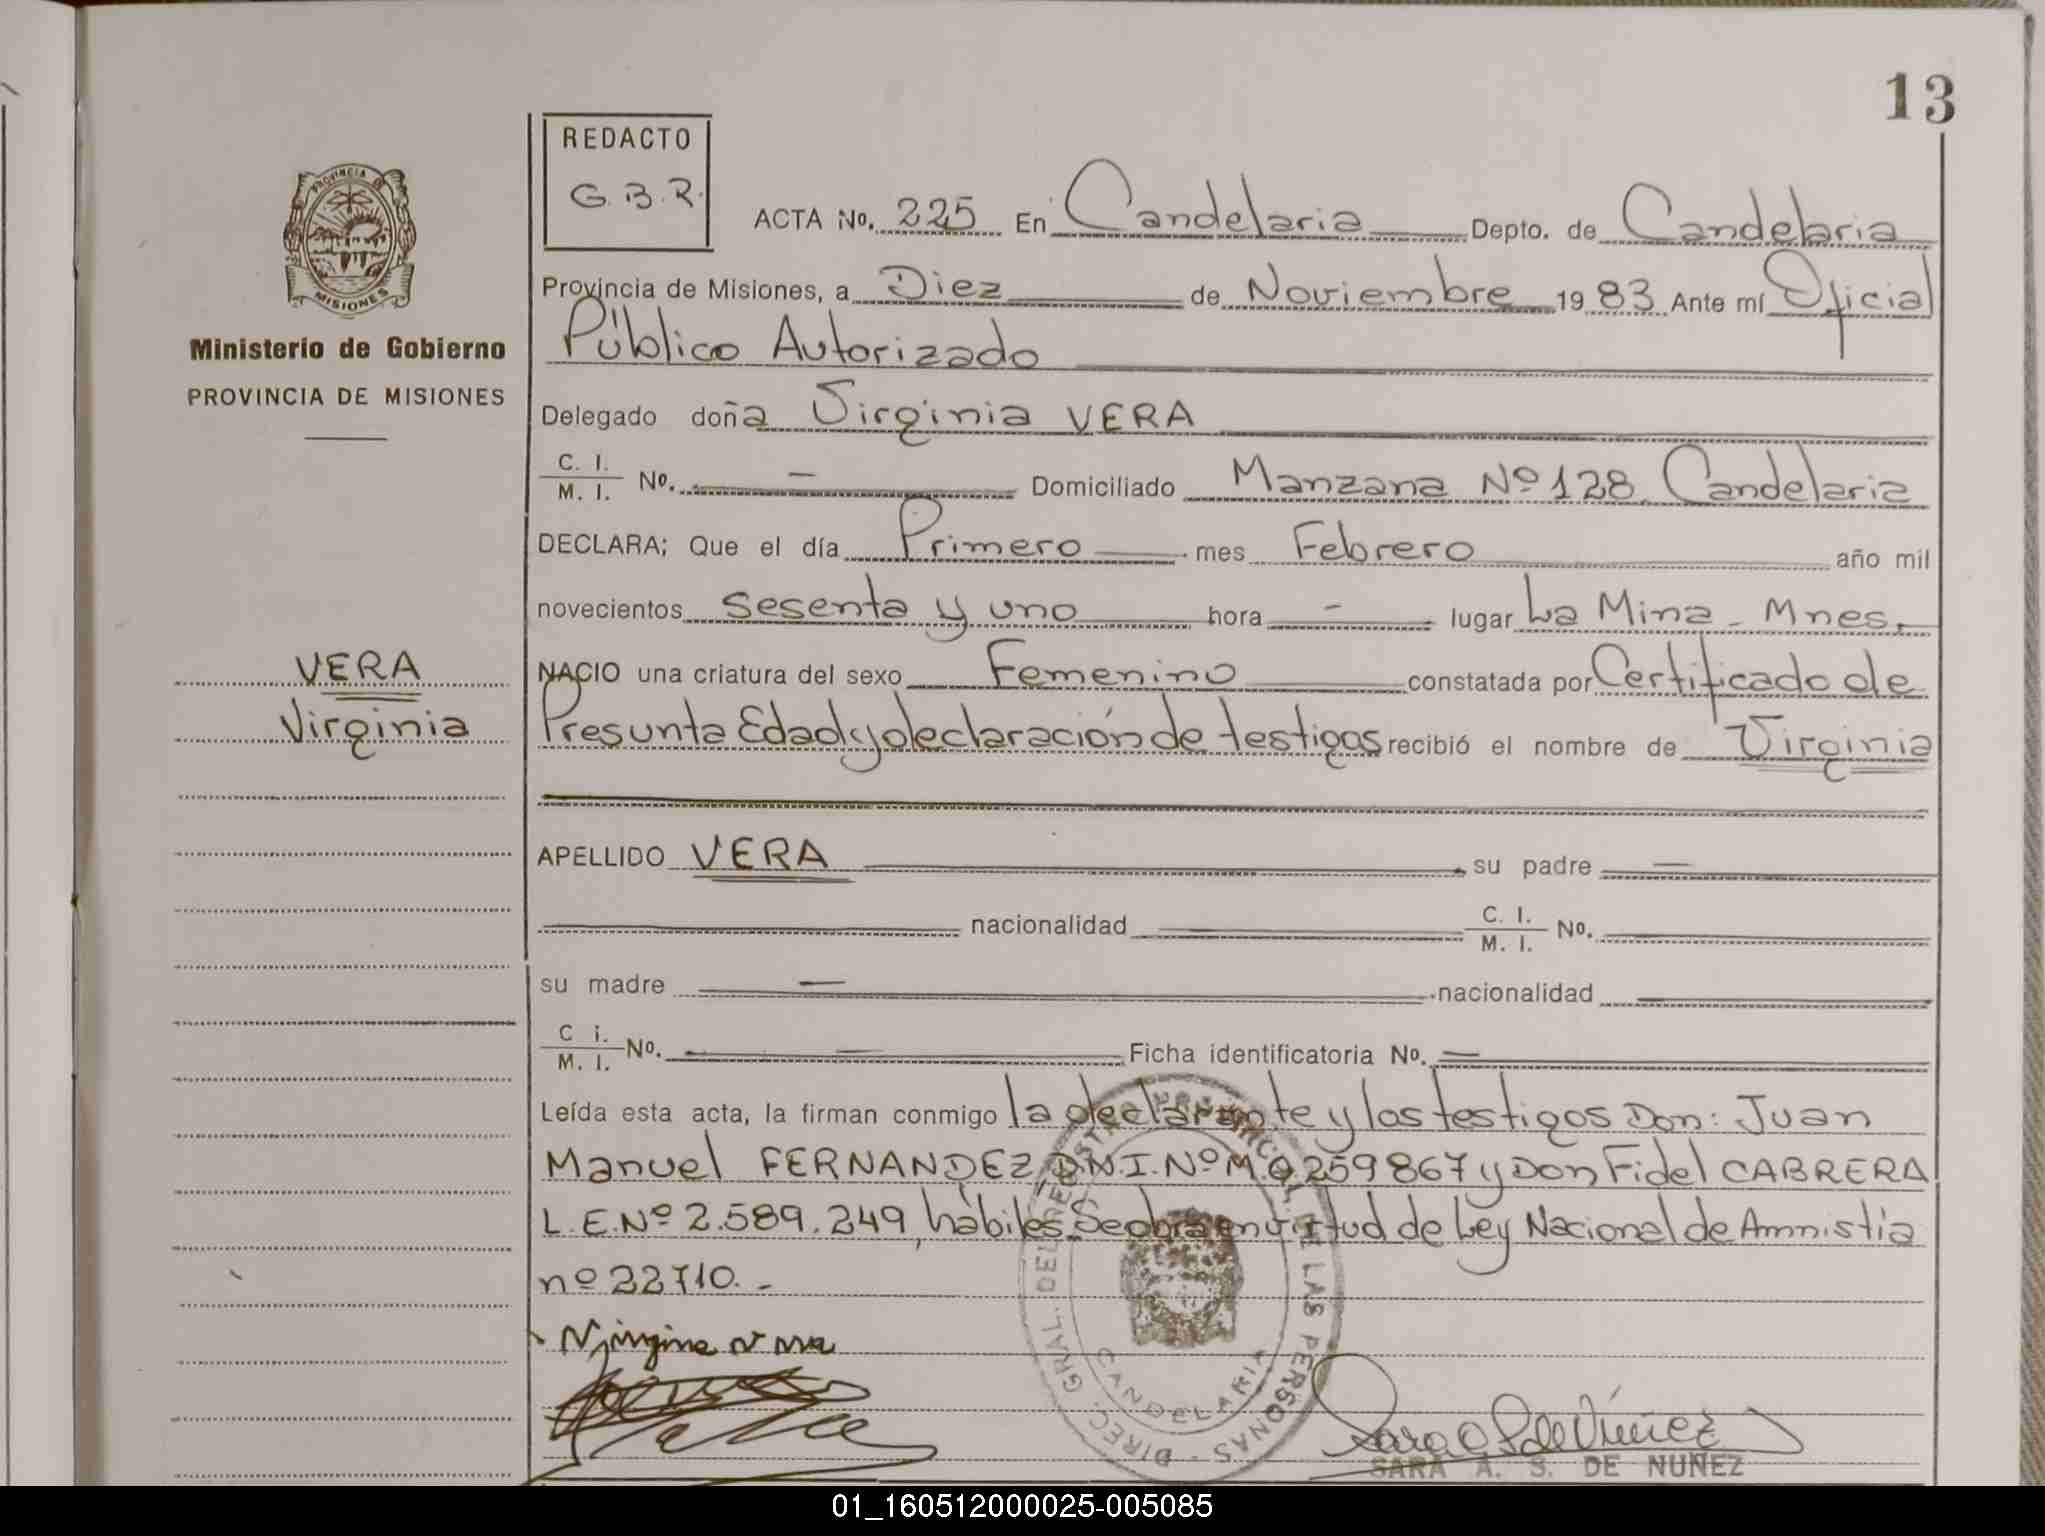 13
REDACTO
G.B.R.
PROVINCIA DE
MISIONES
Ministerio de Gobierno
PROVINCIA DE MISIONES
ACTA No. 225 En Candelaria Depto. de Candelaria
Provincia de Misiones, a Diez de Noviembre 1983 Ante mí Oficial
Público Autorizado
Delegado doña Virginia VERA
C. I. / M. I. No. — Domiciliado Manzana Nº 128 Candelaria
DECLARA; Que el día Primero mes Febrero año mil
novecientos sesenta y uno hora — lugar La Mina - Mnes.
VERA
Virginia
NACIO una criatura del sexo Femenino constatada por Certificado de
Presunta Edad y declaración de testigos recibió el nombre de Virginia
APELLIDO VERA su padre —
nacionalidad C. I. / M. I. No.
su madre — nacionalidad
C i. / M. I. No. — Ficha identificatoria No. —
Leída esta acta, la firman conmigo la declarante y los testigos Don: Juan
Manuel FERNANDEZ D.N.I. Nº M.0.259867 y Don Fidel CABRERA
L.E.Nº 2.589.249, hábiles. Se obra en virtud de Ley Nacional de Amnistía
nº 22710.-
DIREC. GRAL. DEL REGISTRO PROVINCIAL DE LAS PERSONAS -
CANDELARIA
SARA A. S. DE NUÑEZ
01_160512000025-005085